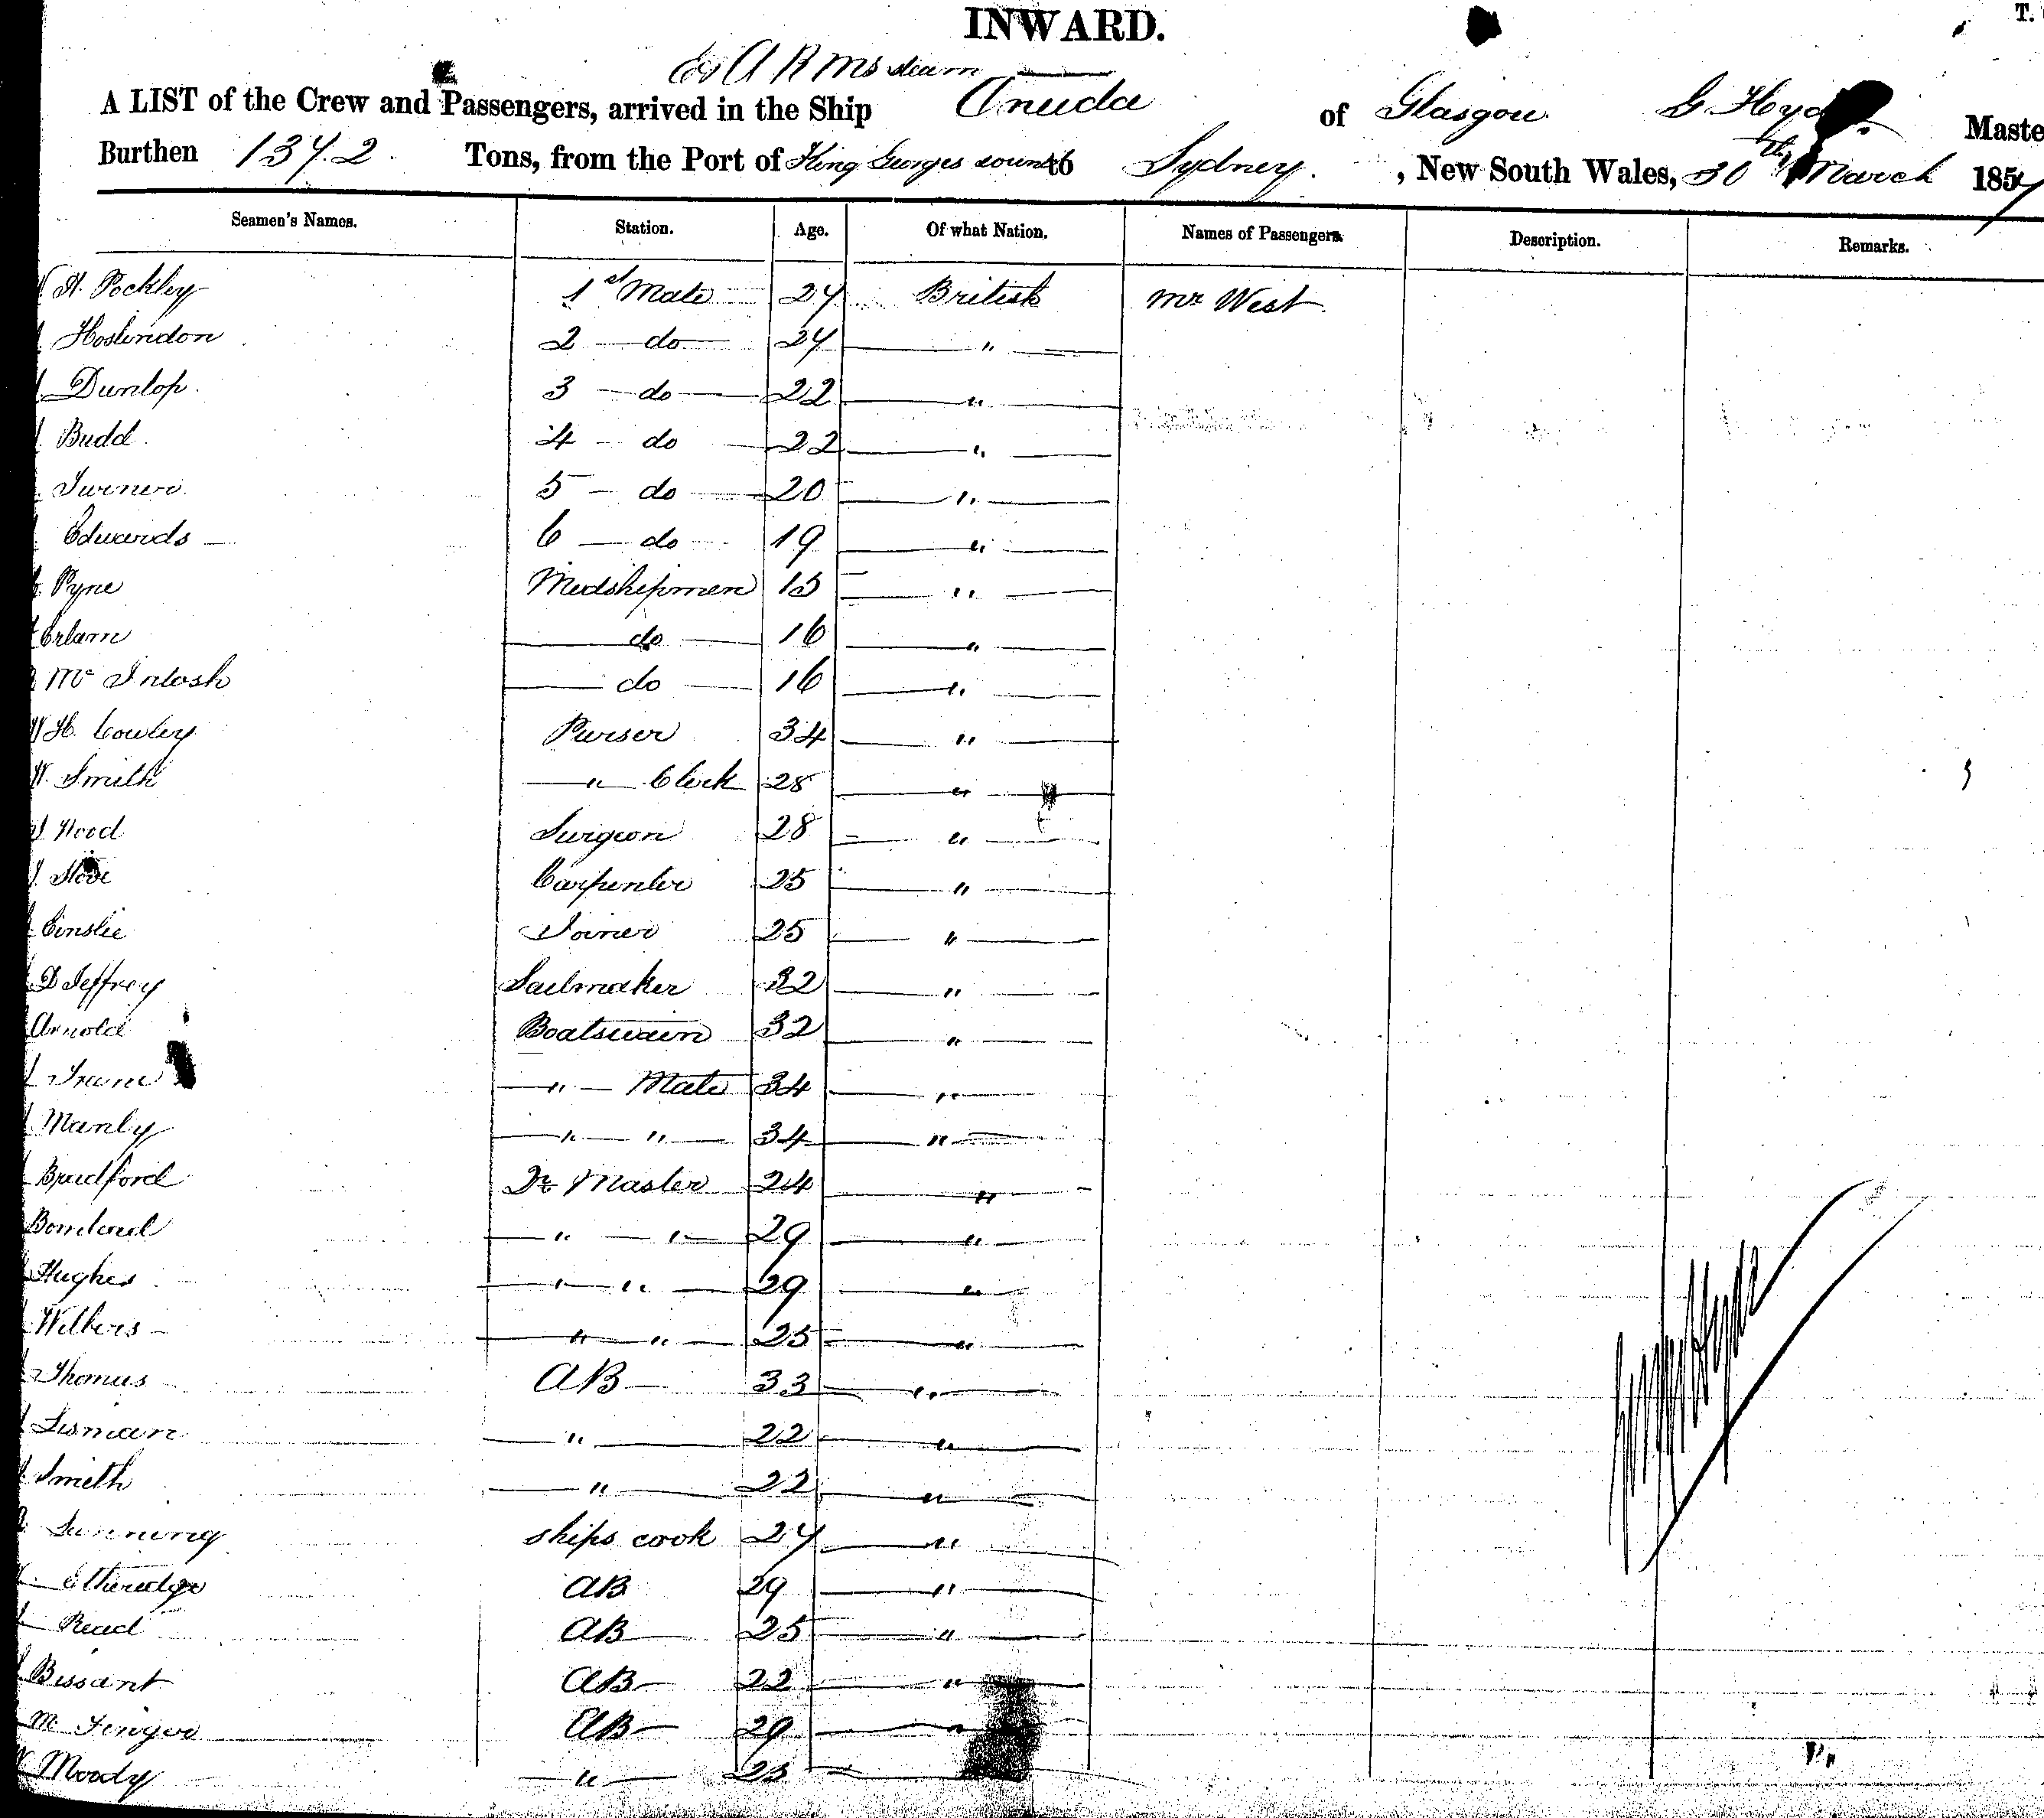 INWARD.
T.
A R Ms steam
A LIST of the Crew and Passengers, arrived in the Ship Oneida of Glasgow G. Hyde Maste
Burthen 1372. Tons, from the Port of King Georges sound to Sydney. , New South Wales, 30th March 1857
Seamen's Names. Station. Age. Of what Nation. Names of Passengers. Description. Remarks.
H. Pockley 1st Mate 27 British Mr West.
Hoslindon 2 do 27 "
Dunlop. 3 do 22 "
Budd. 4 do 22 "
Turner. 5 do 20 "
Edwards 6 do 19 "
Pyne Midshipmen 15 "
Erlam do 16 "
Mc Intosh do 16 "
W H. Cowley Purser 34 "
W. Smith " Clerk 28 "
Wood Surgeon 28 "
Carpenter 25 "
Einslie Joiner 25 "
D Jeffrey Sailmaker 32 "
Arnold Boatswain 32 "
" Mate 34 "
Manly " " 34 "
Bradford Qr Master 24 "
" " 29 "
Hughes " " 29 "
Wilbers " " 25 "
Thomas AB 33 "
" 22 "
Smith " 22 "
ships cook 27 "
Etheredge AB 29 "
Read AB 25 "
Bissant AB 22 "
M Finger AB 29 "
Moody " 25